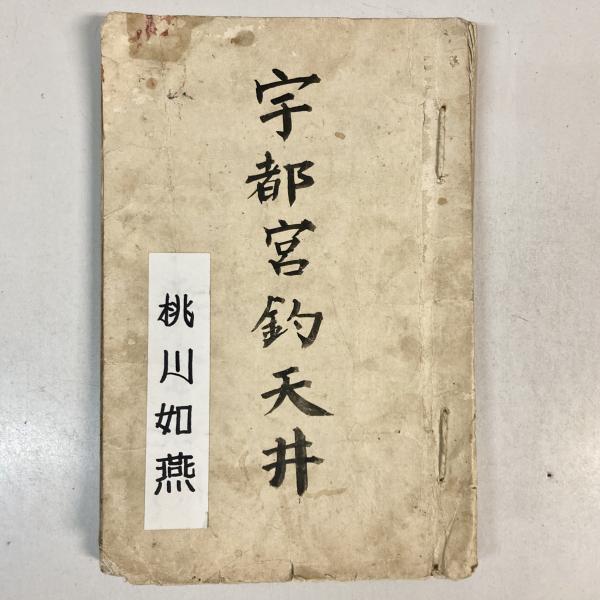 宇都宮釣天井
桃川如燕